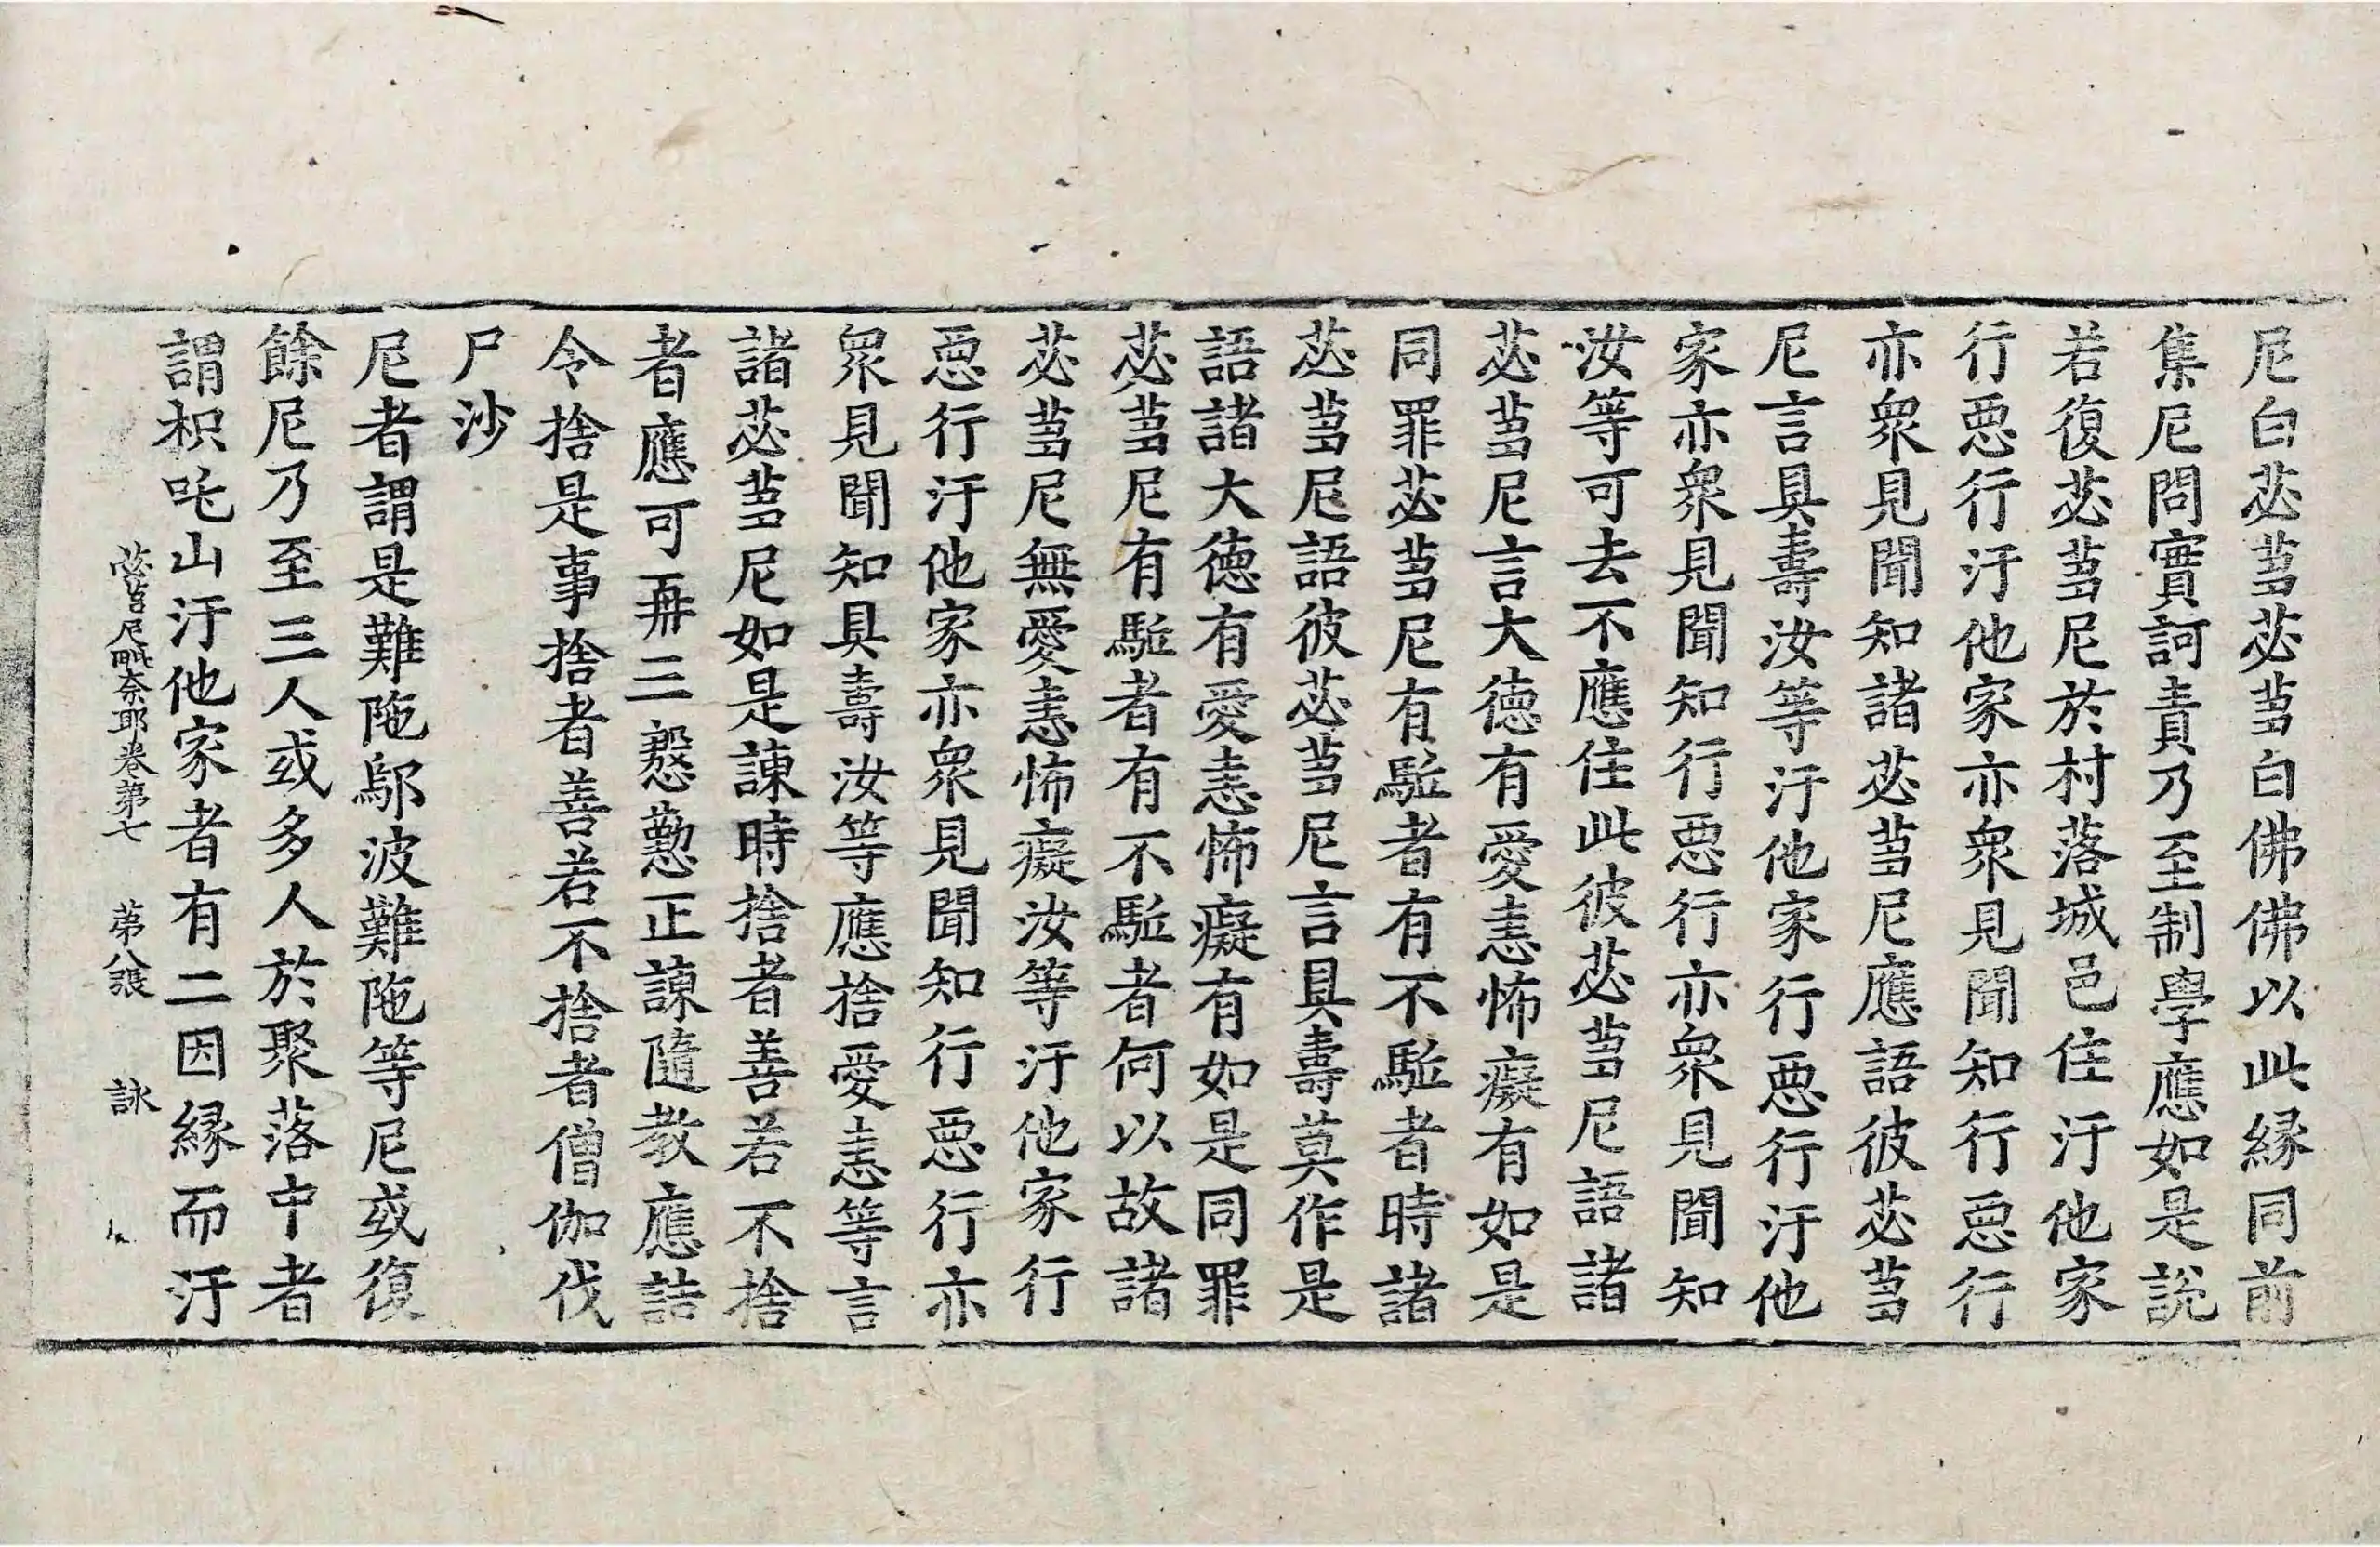 尼白苾芻苾芻白佛佛以此縁同前
集尼問實訶責乃至制學應如是說
若復苾芻尼於村落城邑住汙他家
行惡行汙他家亦衆見聞知行惡行
亦衆見聞知諸苾芻尼應語彼苾芻
尼言具壽汝等汙他家行惡行汙他
家亦衆見聞知行惡行亦衆見聞知
汝等可去不應住此彼苾芻尼語諸
苾芻尼言大德有愛恚怖癡有如是
同罪苾芻尼有駈者有不駈者時諸
苾芻尼語彼苾芻尼言具壽莫作是
語諸大德有愛恚怖癡有如是同罪
苾芻尼有駈者有不駈者何以故諸
苾芻尼無愛恚怖癡汝等汙他家行
惡行汙他家亦衆見聞知行惡行亦
衆見聞知具壽汝等應捨愛恚等言
諸苾芻尼如是諫時捨者善若不捨
者應可再三慇懃正諫隨教應詰
令捨是事捨者善若不捨者僧伽伐
尸沙
尼者謂是難陁鄔波難陁等尼或復
餘尼乃至三人或多人於聚落中者
謂枳吒山汙他家者有二因縁而汙
苾芻尼毗奈耶卷第七 第八張 詠